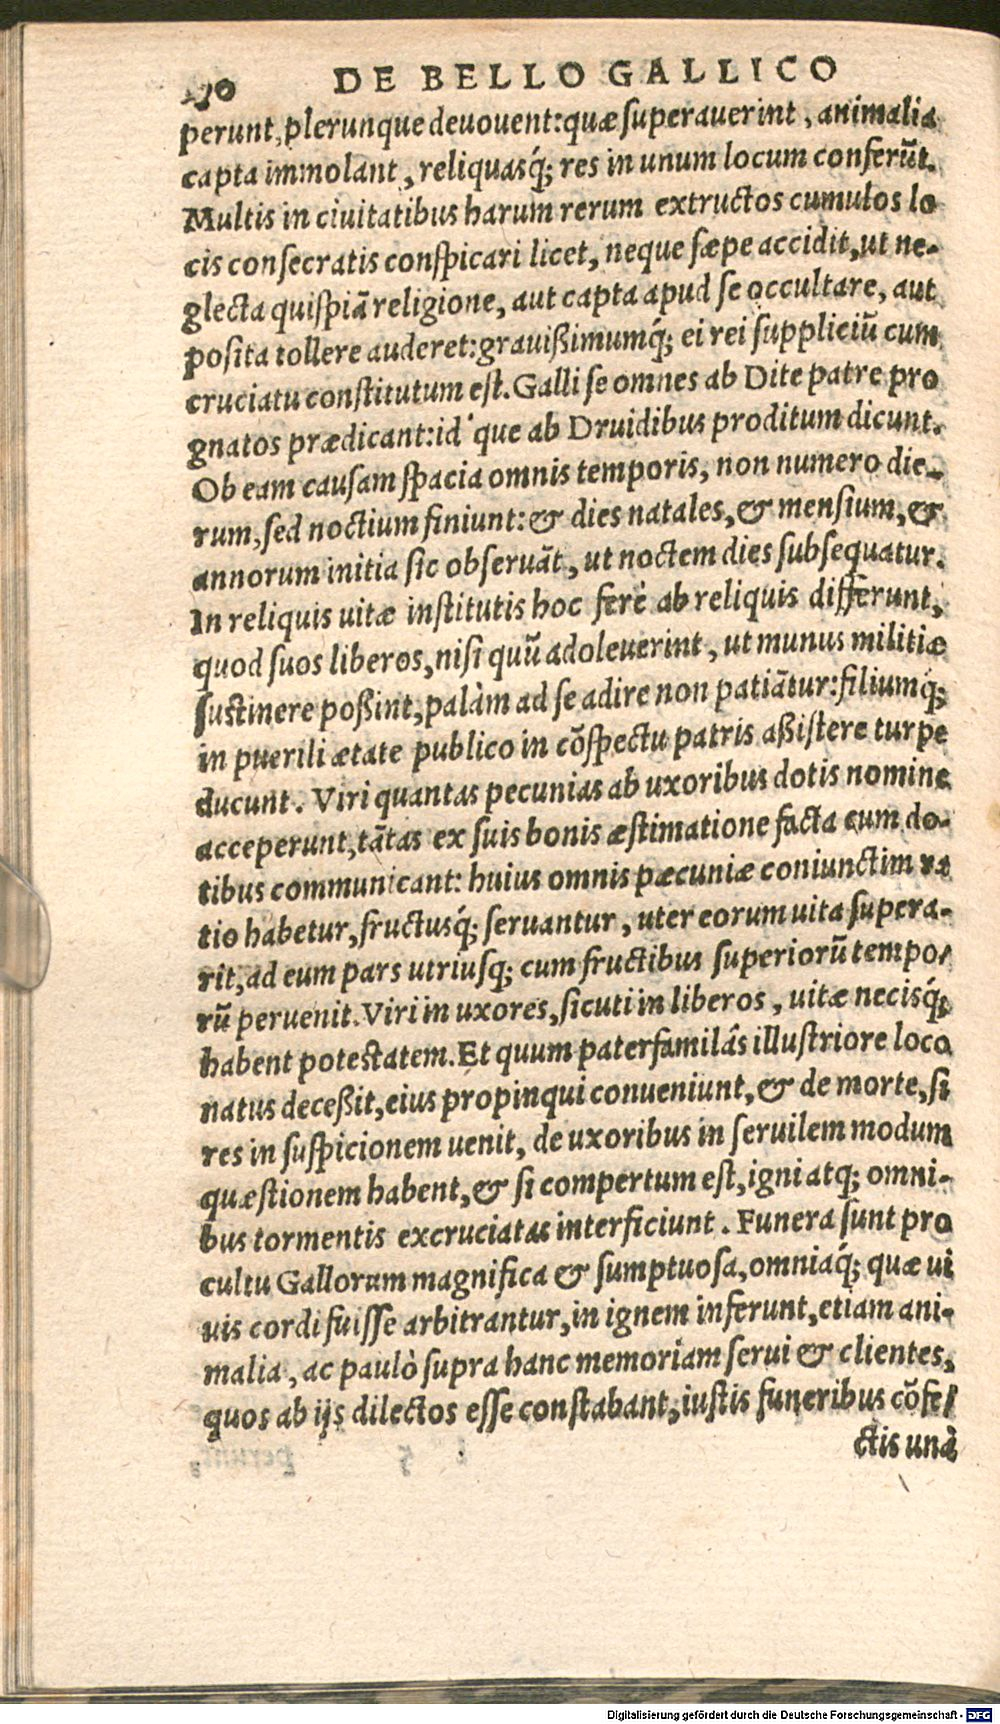 DE BELLO GALLICO
perunt, plerunque deuouent:quæ superauerint, animalia
capta immolant, reliquasq́; res in unum locum conferūt.
Multis in ciuitatibus harum rerum extructos cumulos lo
cis consecratis conspicari licet, neque sæpe accidit, ut ne-
glecta quispiā religione, aut capta apud se occultare, aut
posita tollere auderet:grauißimumq́; ei rei suppliciū cum
cruciatu constitutum est. Galli se omnes ab Dite patre pro
gnatos prædicant:id que ab Druidibus proditum dicunt.
Ob eam causam spacia omnis temporis, non numero die-
rum, sed noctium finiunt:& dies natales, & mensium, &
annorum initia sic obseruāt, ut noctem dies subsequatur.
In reliquis uitæ institutis hoc ferè ab reliquis differunt,
quod suos liberos, nisi quū adoleuerint, ut munus militiæ
sustinere poßint, palàm ad se adire non patiātur:filiumq́;
in puerili ætate publico in cōspectu patris aßistere turpe
ducunt. Viri quantas pecunias ab uxoribus dotis nomine
acceperunt, tātas ex suis bonis æstimatione facta cum do-
tibus communicant: huius omnis pæcuniæ coniunctim ra
tio habetur, fructusq́; seruantur, uter eorum uita supera-
rit, ad eum pars utriusq; cum fructibus superiorū tempo-
rū peruenit. Viri in uxores, sicuti in liberos, uitæ necisq́;
habent potestatem. Et quum paterfamiliâs illustriore loco
natus deceßit, eius propinqui conueniunt, & de morte, si
res in suspicionem uenit, de uxoribus in seruilem modum
quæstionem habent, & si compertum est, igni atq; omni-
bus tormentis excruciatas interficiunt. Funera sunt pro
cultu Gallorum magnifica & sumptuosa, omniaq́; quæ ui
uis cordi fuisse arbitrantur, in ignem inferunt, etiam ani-
malia, ac paulò supra hanc memoriam serui & clientes,
quos ab ijs dilectos esse constabant, iustis funeribus cōfe-
ctis unà
Digitalisierung gefördert durch die Deutsche Forschungsgemeinschaft - DFG